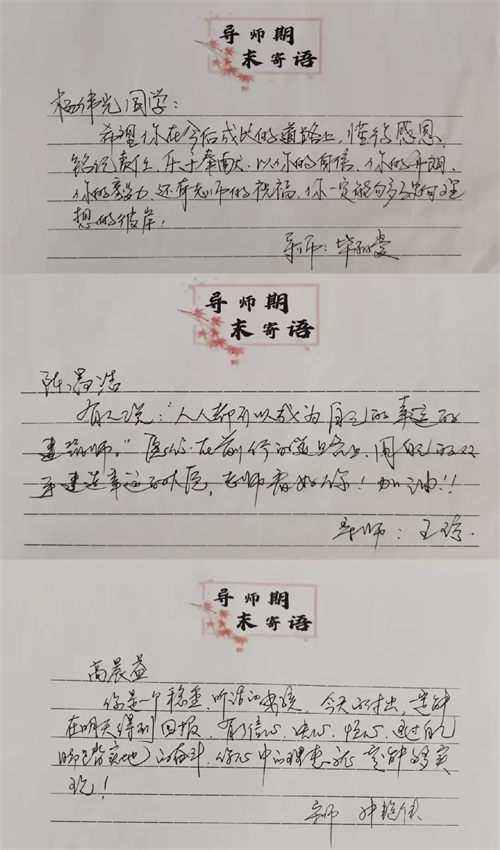 导师期
末寄语
杨伟光同学：
希望你在今后成长的道路上，懂得感恩，
铭记责任，乐于奉献，以你的自信、你的开朗、
你的毅力，还有老师的祝福，你一定能到达理
想的彼岸！
导师：毕
导师期
末寄语
陈洁
有人说：“人人都可以成为自己的幸运的
建筑师。”愿你在前行的道路上，用自己的双
手建造幸运的大厦，老师看好你！加油！！
导师：王
导师期
末寄语
高晨益
你是一个稳重、听话的男孩，今天的付出，定能
在明天得到回报，有信心、决心、恒心，通过自己
脚踏实地的奋斗，你心中的理想就定能够实
现！
导师